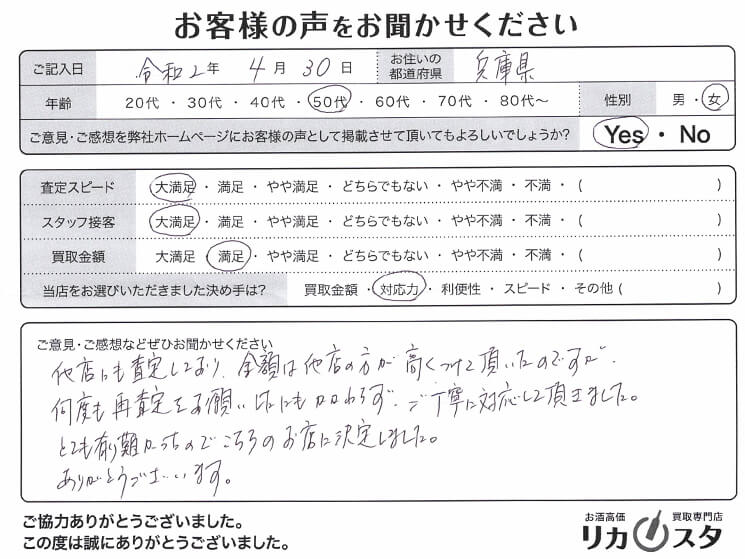 お客様の声をお聞かせください
ご記入日 令和2年 4月 30日 お住いの都道府県 兵庫県
年齢 20代 ・ 30代 ・ 40代 ・ 50代 ・ 60代 ・ 70代 ・ 80代〜 性別 男 ・ 女
ご意見・ご感想を弊社ホームページにお客様の声として掲載させて頂いてもよろしいでしょうか? Yes ・ No
査定スピード 大満足 ・ 満足 ・ やや満足 ・ どちらでもない ・ やや不満 ・ 不満 ・ ( )
スタッフ接客 大満足 ・ 満足 ・ やや満足 ・ どちらでもない ・ やや不満 ・ 不満 ・ ( )
買取金額 大満足 ・ 満足 ・ やや満足 ・ どちらでもない ・ やや不満 ・ 不満 ・ ( )
当店をお選びいただきました決め手は? 買取金額 ・ 対応力 ・ 利便性 ・ スピード ・ その他 ( )
ご意見・ご感想などぜひお聞かせください
他店にも査定しており、金額は他店の方が高くつけて頂いたのですが、
何度も再査定をお願いしたにもかかわらず、ご丁寧に対応して頂きました。
とても有り難かったのでこちらのお店に決定しました。
ありがとうございます。
ご協力ありがとうございました。
この度は誠にありがとうございました。
お酒高価 買取専門店
リカスタ